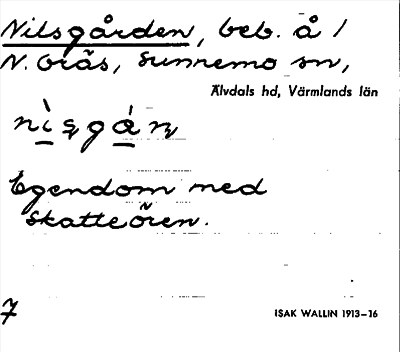 Nilsgården, beb. å 1
N. Gräs, Sunnemo sn,
Älvdals hd, Värmlands län
Egendom med
skatteören.
7
ISAK WALLIN 1913–16